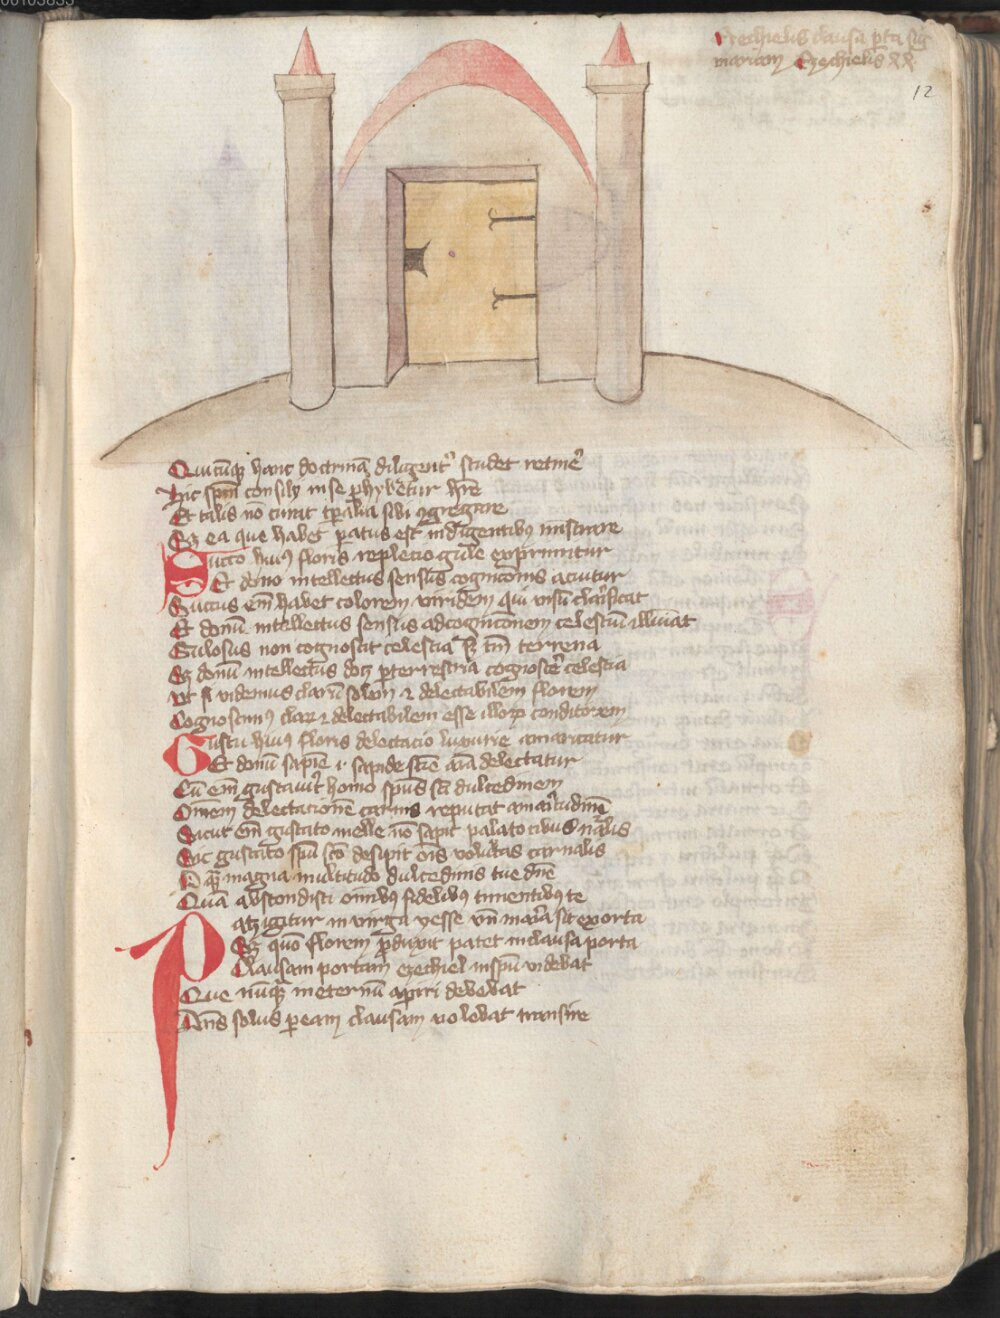 Ezechielis clausa porta sig
mariam Ezechielis
12
Quicunq hanc doctrinam diligent studet retinere
Hic spm consilij in se perhibetur hre
Et talis no curat tpralia sibi ɔgregare
Sz ea que habet paratus est indigentibus mistrare
Succo huius floris replecio gule exprimitur
Et dono intellectus sensus cognicionis acuitur
Succus em habet colorem viridem qui visum clarificat
Et donum intellectus sensus ad cognicionem celestium illuminat
Gulosus non cognoscit celestia sed tm terrena
Sz donum intellectus docz per terrestria cognoscere celestia
Ut si videmus clarum solem et delectabilem florem
Cognoscimus claru et delectabilem esse illorum conditorem
Gustu huius floris delectacio luxurie amaricatur
Et donum sapie i sapide scie aia delectatur
Cu em gustauit homo spus sci dulcedinem
Omem delectacionem carnis reputat amaritudinem
Sicut em gustato melle no sapit palato cibus
Sic gustato spu sco desipit ois voluptas carnalis
O quam magna multitudo dulcedinis tue dne
Quam abscondisti omibus fidelibus timentibus te
Patz igitur in virga yesse vn maria sit exorta
Sz quo florem produxit patet in clausa porta
Clausam portam ezechiel in spu videbat
Que nuquam in eternum apiri debebat
Dns solus per eam clausam volebat transire